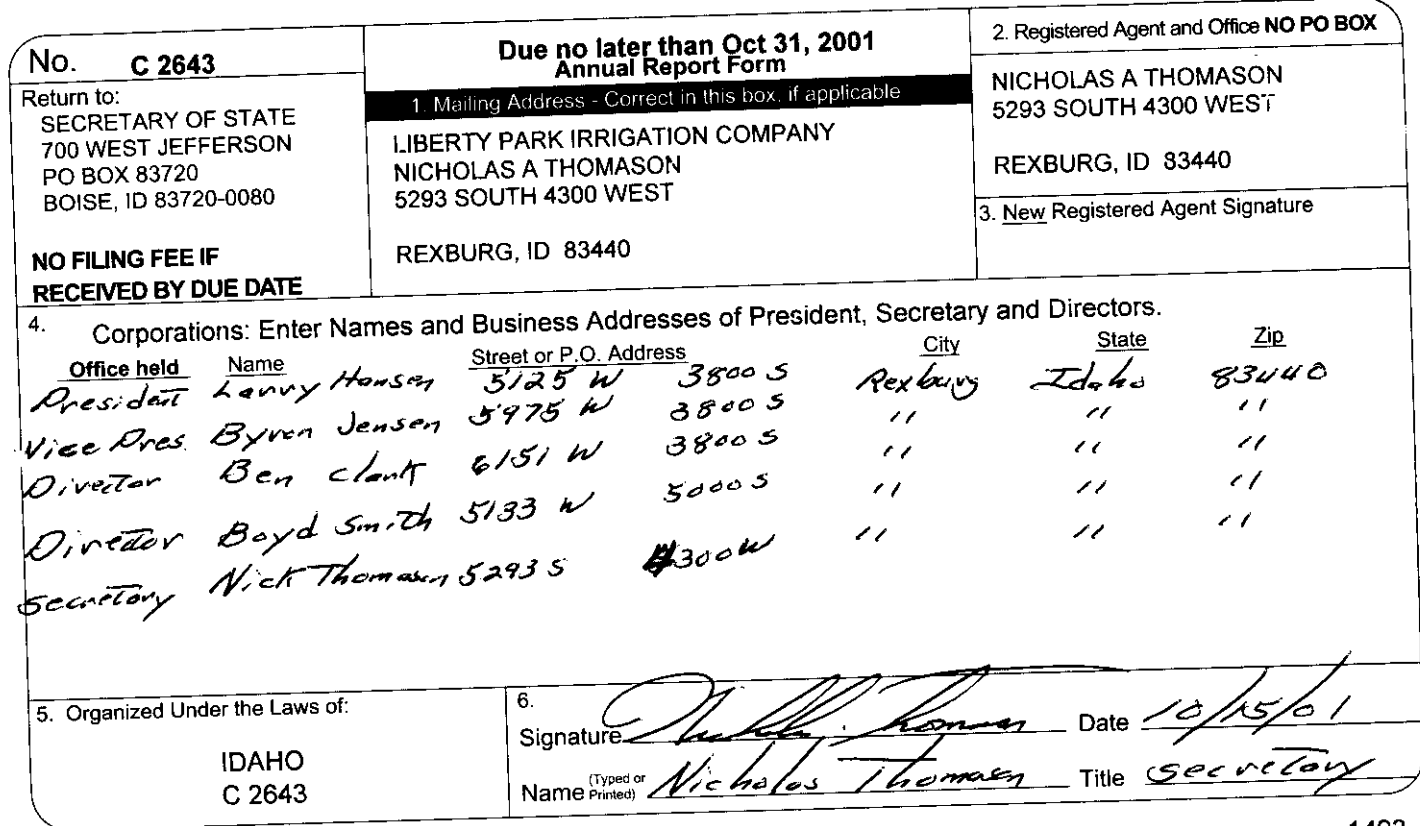 No. C 2643
Return to:
SECRETARY OF STATE
700 WEST JEFFERSON
PO BOX 83720
BOISE, ID 83720-0080
NO FILING FEE IF
RECEIVED BY DUE DATE
Due no later than Oct 31, 2001
Annual Report Form
1. Mailing Address - Correct in this box, if applicable
LIBERTY PARK IRRIGATION COMPANY
NICHOLAS A THOMASON
5293 SOUTH 4300 WEST
REXBURG, ID 83440
2. Registered Agent and Office NO PO BOX
NICHOLAS A THOMASON
5293 SOUTH 4300 WEST
REXBURG, ID 83440
3. New Registered Agent Signature
4. Corporations: Enter Names and Business Addresses of President, Secretary and Directors.
Office held Name Street or P.O. Address City State Zip
President Larry Hansen 5125 W 3800 S Rexburg Idaho 83440
Vice Pres. Byron Jensen 5975 W 3800 S " " "
Director Ben Clark 6151 W 3800 S " " "
Director Boyd Smith 5133 W 5000 S " " "
Secretary Nick Thomason 5293 S 4300 W " " "
5. Organized Under the Laws of:
IDAHO
C 2643
6.
Signature Nicholas Thomason Date 10/15/01
Name (Typed or Printed) Nicholas Thomason Title Secretary